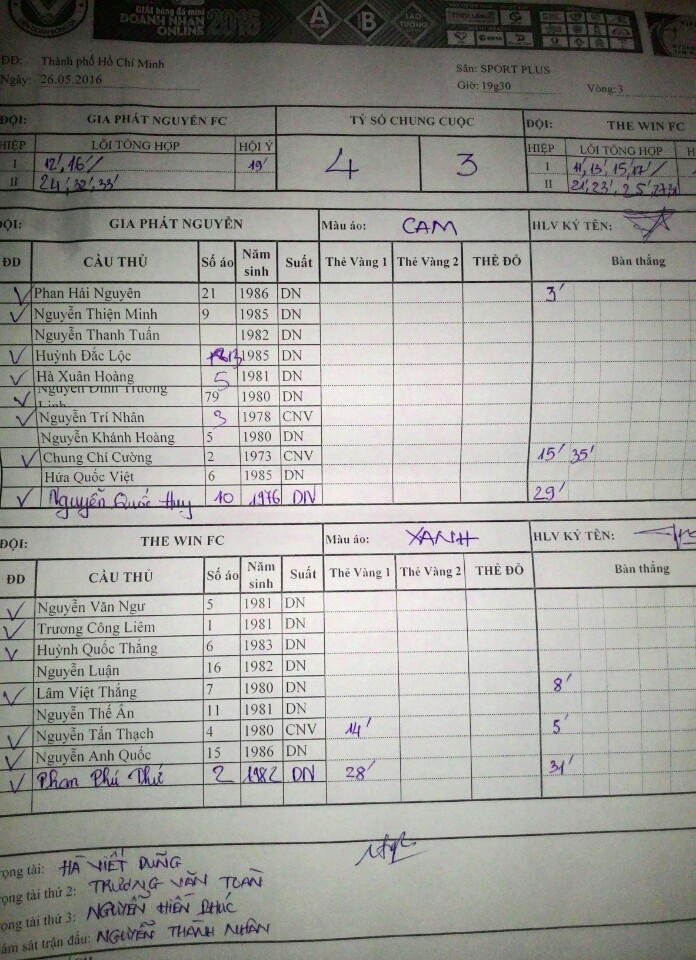 GIẢI bóng đá mini
DOANH NHÂN
ONLINE 2016
A B
LÀO TƯỚNG
ĐĐ: Thành phố Hồ Chí Minh
Sân: SPORT PLUS
Ngày: 26.05.2016
Giờ: 19g30 Vòng: 3
ĐỘI: GIA PHÁT NGUYÊN FC TỶ SỐ CHUNG CUỘC ĐỘI: THE WIN FC
HIỆP LỖI TỔNG HỢP HỘI Ý 4 3 HIỆP LỖI TỔNG HỢP
I 12', 16' 19' I 11', 13', 15', 17'
II 24', 32', 33' II 21', 23', 25'
ĐỘI: GIA PHÁT NGUYÊN Màu áo: CAM HLV KÝ TÊN:
ĐD CẦU THỦ Số áo Năm sinh Suất Thẻ Vàng 1 Thẻ Vàng 2 THẺ ĐỎ Bàn thắng
Phan Hải Nguyên 21 1986 DN 3'
Nguyễn Thiện Minh 9 1985 DN
Nguyễn Thanh Tuấn 1982 DN
Huỳnh Đắc Lộc 13 1985 DN
Hà Xuân Hoàng 5 1981 DN
Nguyễn Đình Trường 79 1980 DN
Nguyễn Trí Nhân 3 1978 CNV
Nguyễn Khánh Hoàng 5 1980 DN
Chung Chí Cường 2 1973 CNV 15' 35'
Hứa Quốc Việt 6 1985 DN
Nguyễn Quốc Huy 10 1976 DN 29'
ĐỘI: THE WIN FC Màu áo: XANH HLV KÝ TÊN:
ĐD CẦU THỦ Số áo Năm sinh Suất Thẻ Vàng 1 Thẻ Vàng 2 THẺ ĐỎ Bàn thắng
Nguyễn Văn Ngư 5 1981 DN
Trương Công Liêm 1 1981 DN
Huỳnh Quốc Thắng 6 1983 DN
Nguyễn Luận 16 1982 DN
Lâm Việt Thắng 7 1980 DN 8'
Nguyễn Thế Ân 11 1981 DN
Nguyễn Tấn Thạch 4 1980 CNV 14' 5'
Nguyễn Anh Quốc 15 1986 DN
Phan Phú Thứ 2 1982 DN 28' 31'
rọng tài: HÀ VIẾT DŨNG
rọng tài thứ 2: TRƯƠNG VĂN TOÀN
rọng tài thứ 3: NGUYỄN HIẾN PHÚC
ám sát trận đấu: NGUYỄN THÀNH NHÂN